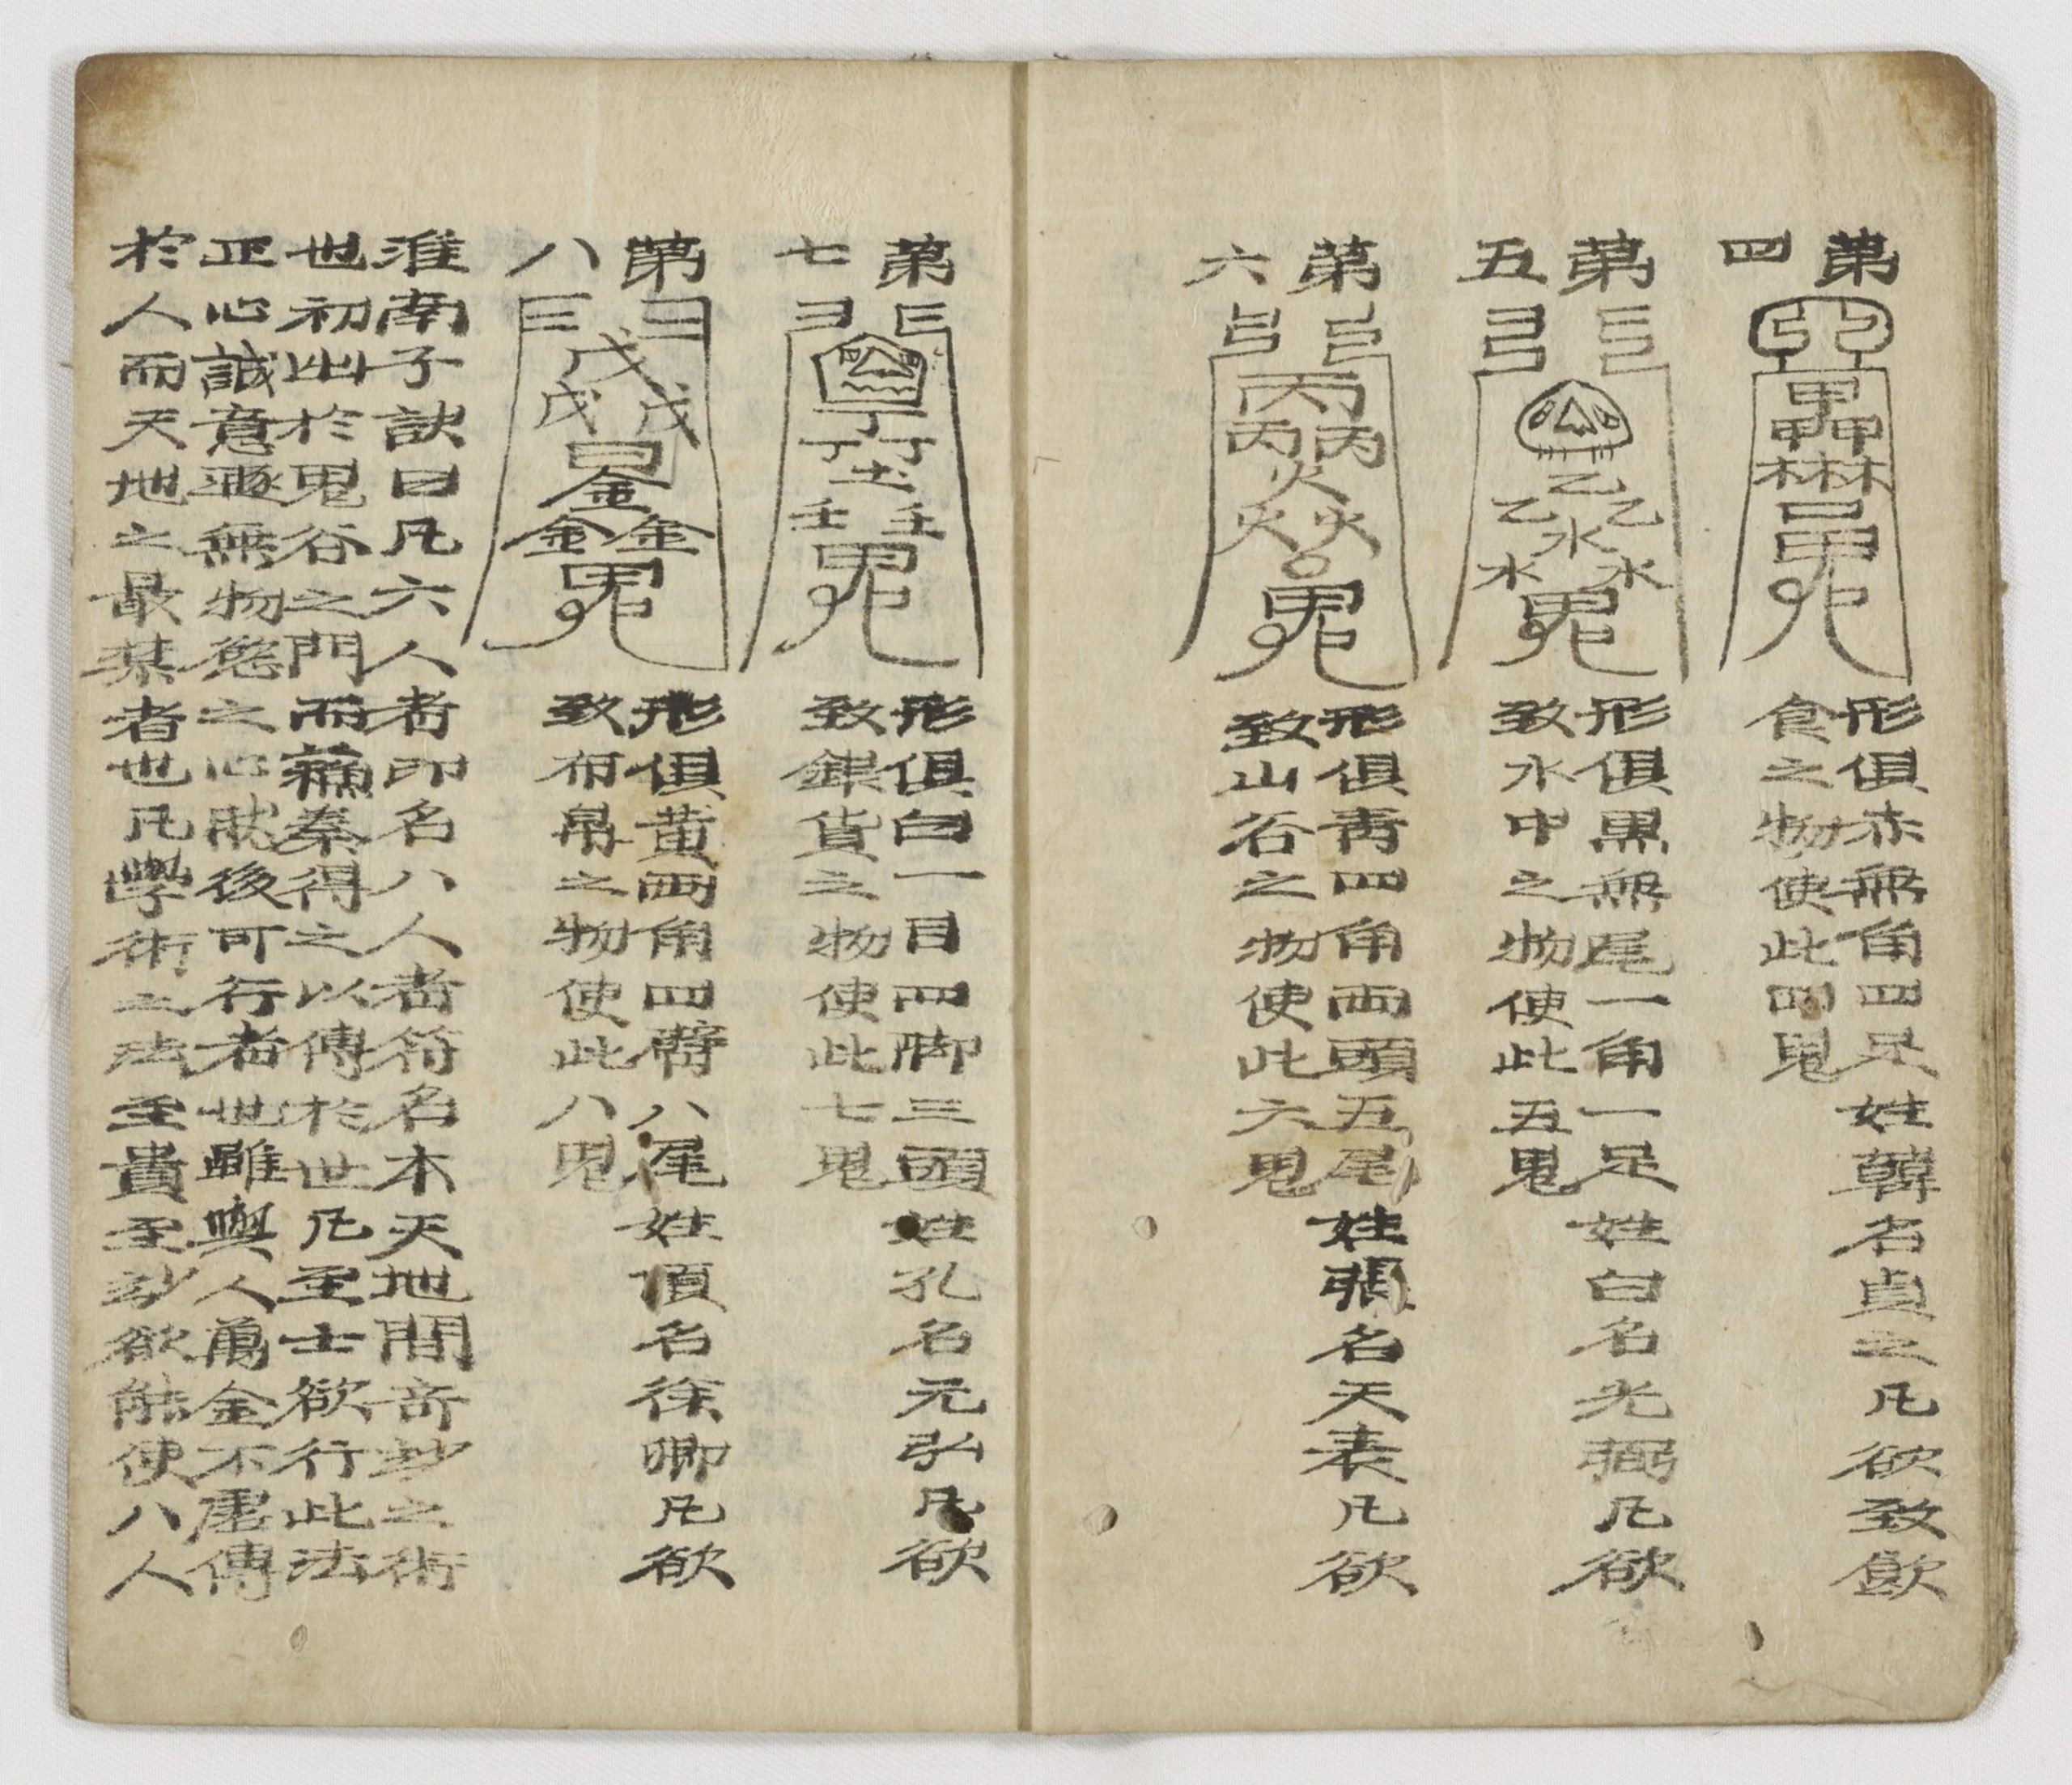 第四
形俱赤無角四足姓韓名貞之凡欲致飲
食之物使此四鬼
第五
形俱黑無尾一角一足姓白名光弼凡欲
致水中之物使此五鬼
第六
形俱靑四角両頭五尾姓張名天表凡欲
致山谷之物使此六鬼
第七
形俱白一目四脚三頭姓孔名元弘凡欲
致銀貨之物使此七鬼
第八
形俱黄両角四臂八尾姓項名徐卿凡欲
致布帛之物使此八鬼
淮南子訣曰凡六人者印名八人者符名本天地間奇妙之術
也初出於鬼谷之門而蘇秦得之以傳於世凡至士欲行此法
正心誠意逐無物慾之心然後可行者也雖與人萬金不虛傳
於人而天地之最禁者也凡學術之法至貴至妙欲能使八人